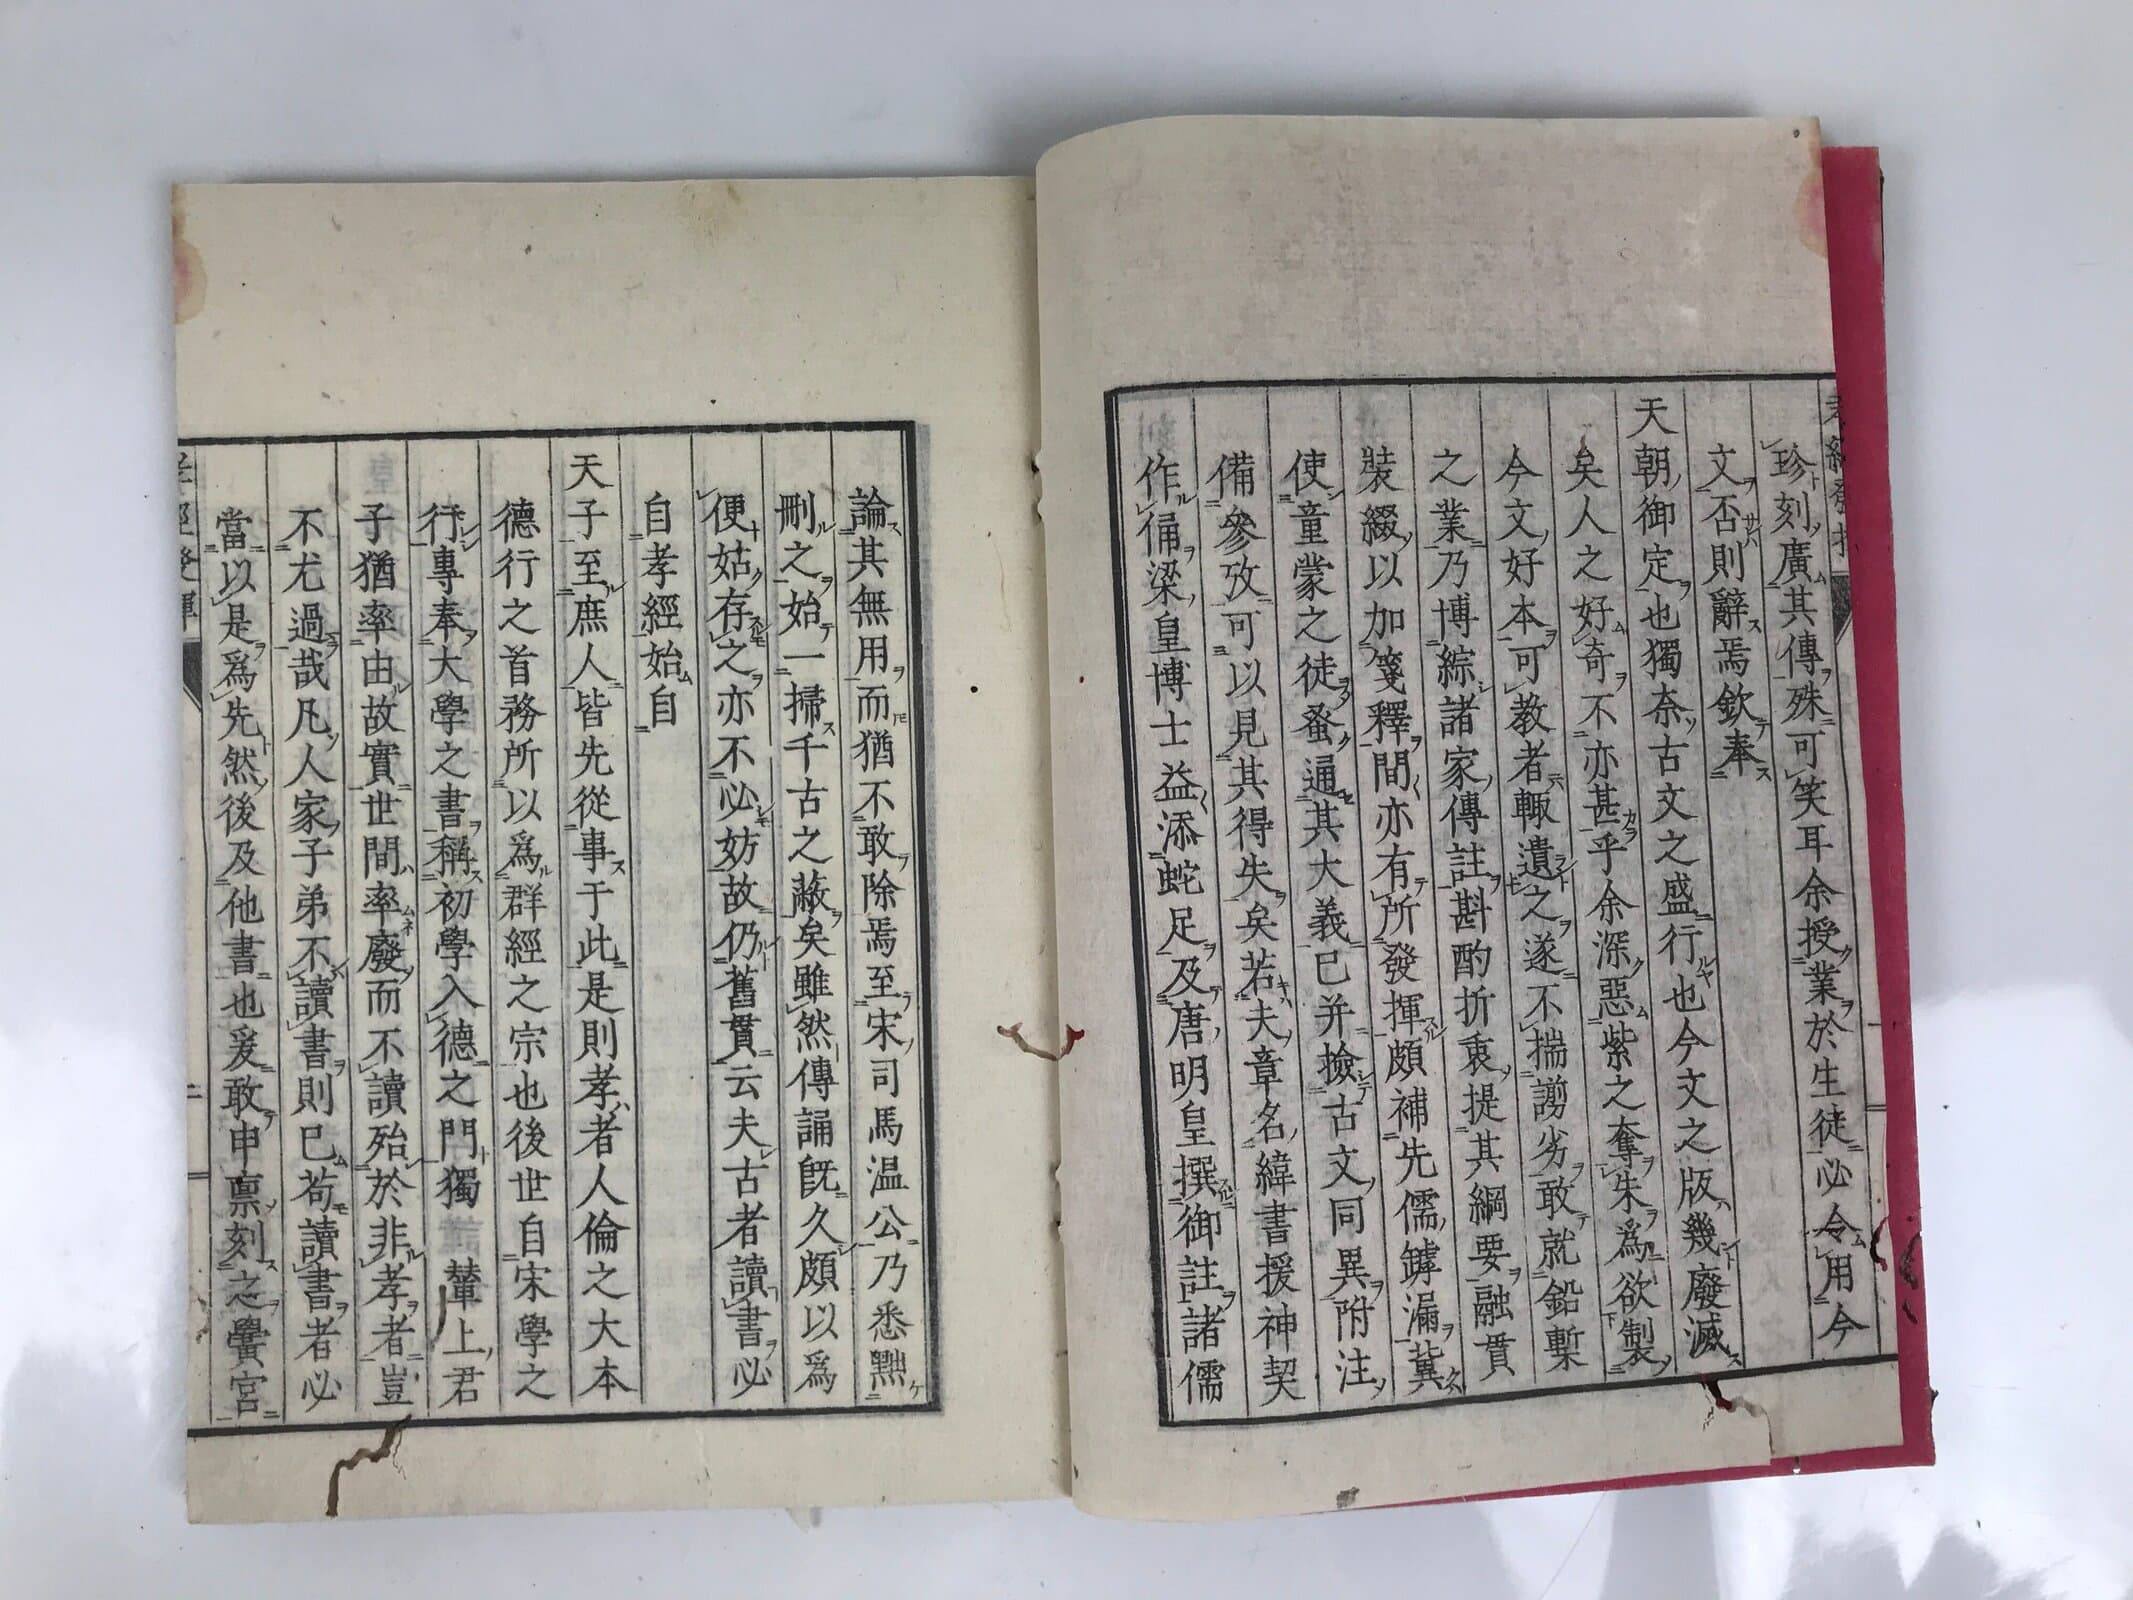 珍刻廣其傳殊可笑耳余授業於生徒必令用今
文否則辭焉欽奉
天朝御定也獨奈古文之盛行也今文之版幾廢滅
矣人之好奇不亦甚乎余深惡紫之奪朱爲欲製
今文好本可教者輙遺之遂不揣謭劣敢就鉛槧
之業乃博綜諸家傳註斟酌折衷提其綱要融貫
裝綴以加箋釋間亦有所發揮頗補先儒罅漏冀
使童蒙之徒蚤通其大義已并撿古文同異附注
備參攷可以見其得失矣若夫章名緯書援神契
作俑梁皇博士益添蛇足及唐明皇撰御註諸儒
論其無用而猶不敢除焉至宋司馬温公乃悉黜
刪之始一掃千古之蔽矣雖然傳誦既久頗以爲
便姑存之亦不必妨故仍舊貫云夫古者讀書必
自孝經始自
天子至庶人皆先從事于此是則孝者人倫之大本
德行之首務所以爲群經之宗也後世自宋學之
行專奉大學之書稱初學入德之門獨 輦上君
子猶率由故實世間率廢而不讀殆於非孝者豈
不尤過哉凡人家子弟不讀書則已苟讀書者必
當以是爲先然後及他書也爰敢申稟刻之黌宮
孝經發揮